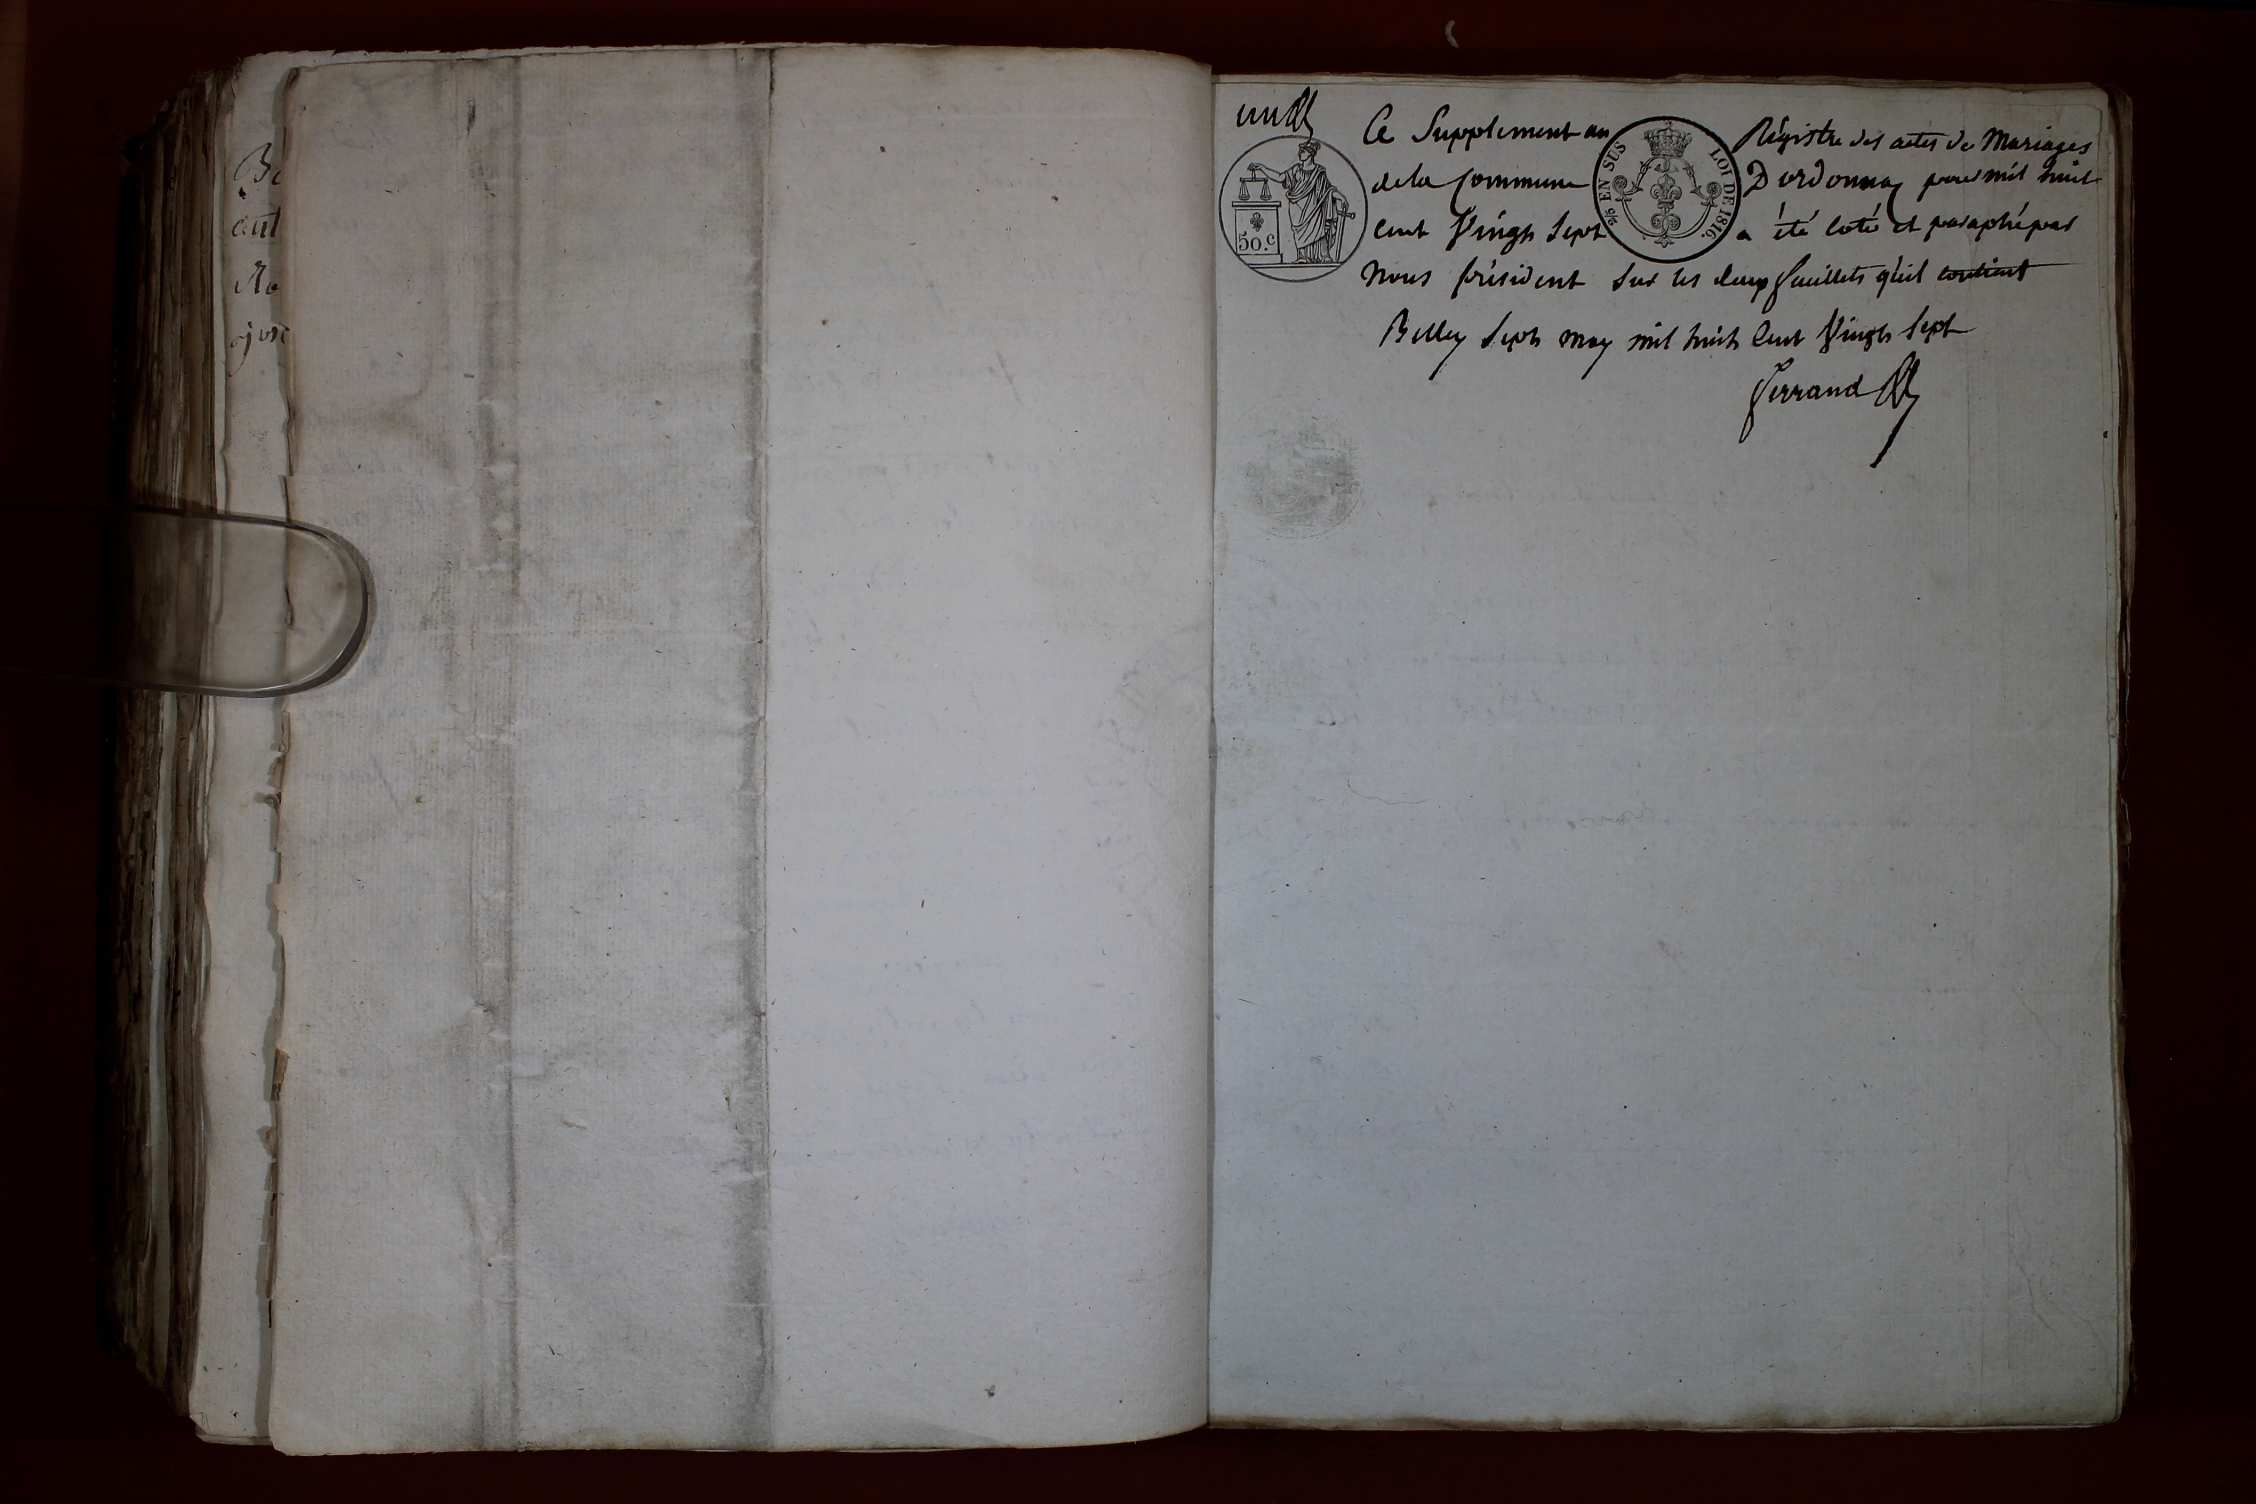 un
Ce Supplement au Régistre des actes de Mariages
de la Commune D'ordonnaz pour mil huit
cent Vingt Sept a été coté et paraphé par
Nous président Sur les deux feuillets qu'il contient
Belley Sept may mil huit Cent Vingt Sept
Ferrand
50.c
EN SUS
LOI DE 1816.